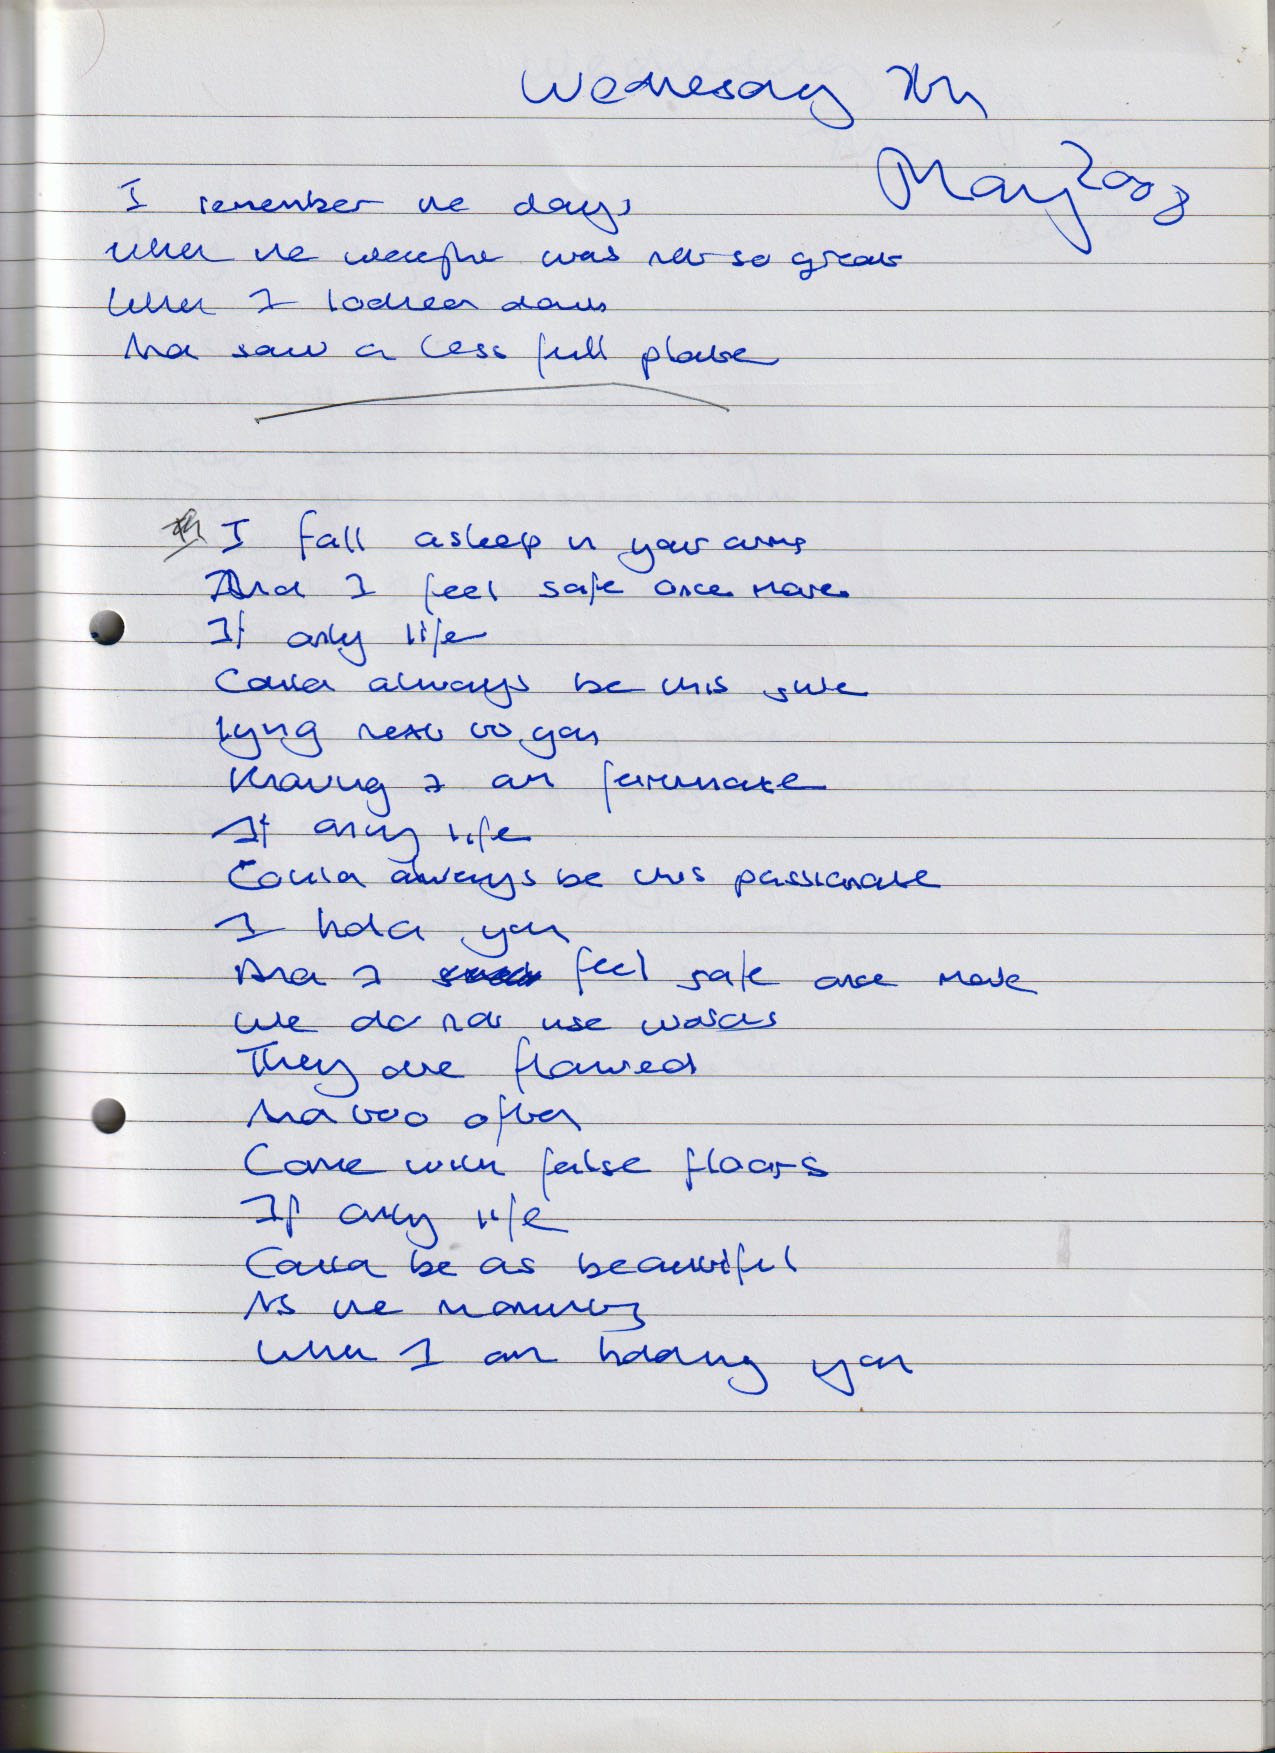 Wednesday 7th
May 2008
I remember the days
When the weight was not so great
When I looked down
And saw a less full plate
I fall asleep in your arms
And I feel safe once more
If only life
Could always be this sure
Lying next to you
Knowing I am fortunate
If only life
Could always be this passionate
I hold you
And I feel safe once more
We do not use words
They are flawed
And too often
Come with false floors
If only life
Could be as beautiful
As the morning
When I am holding you